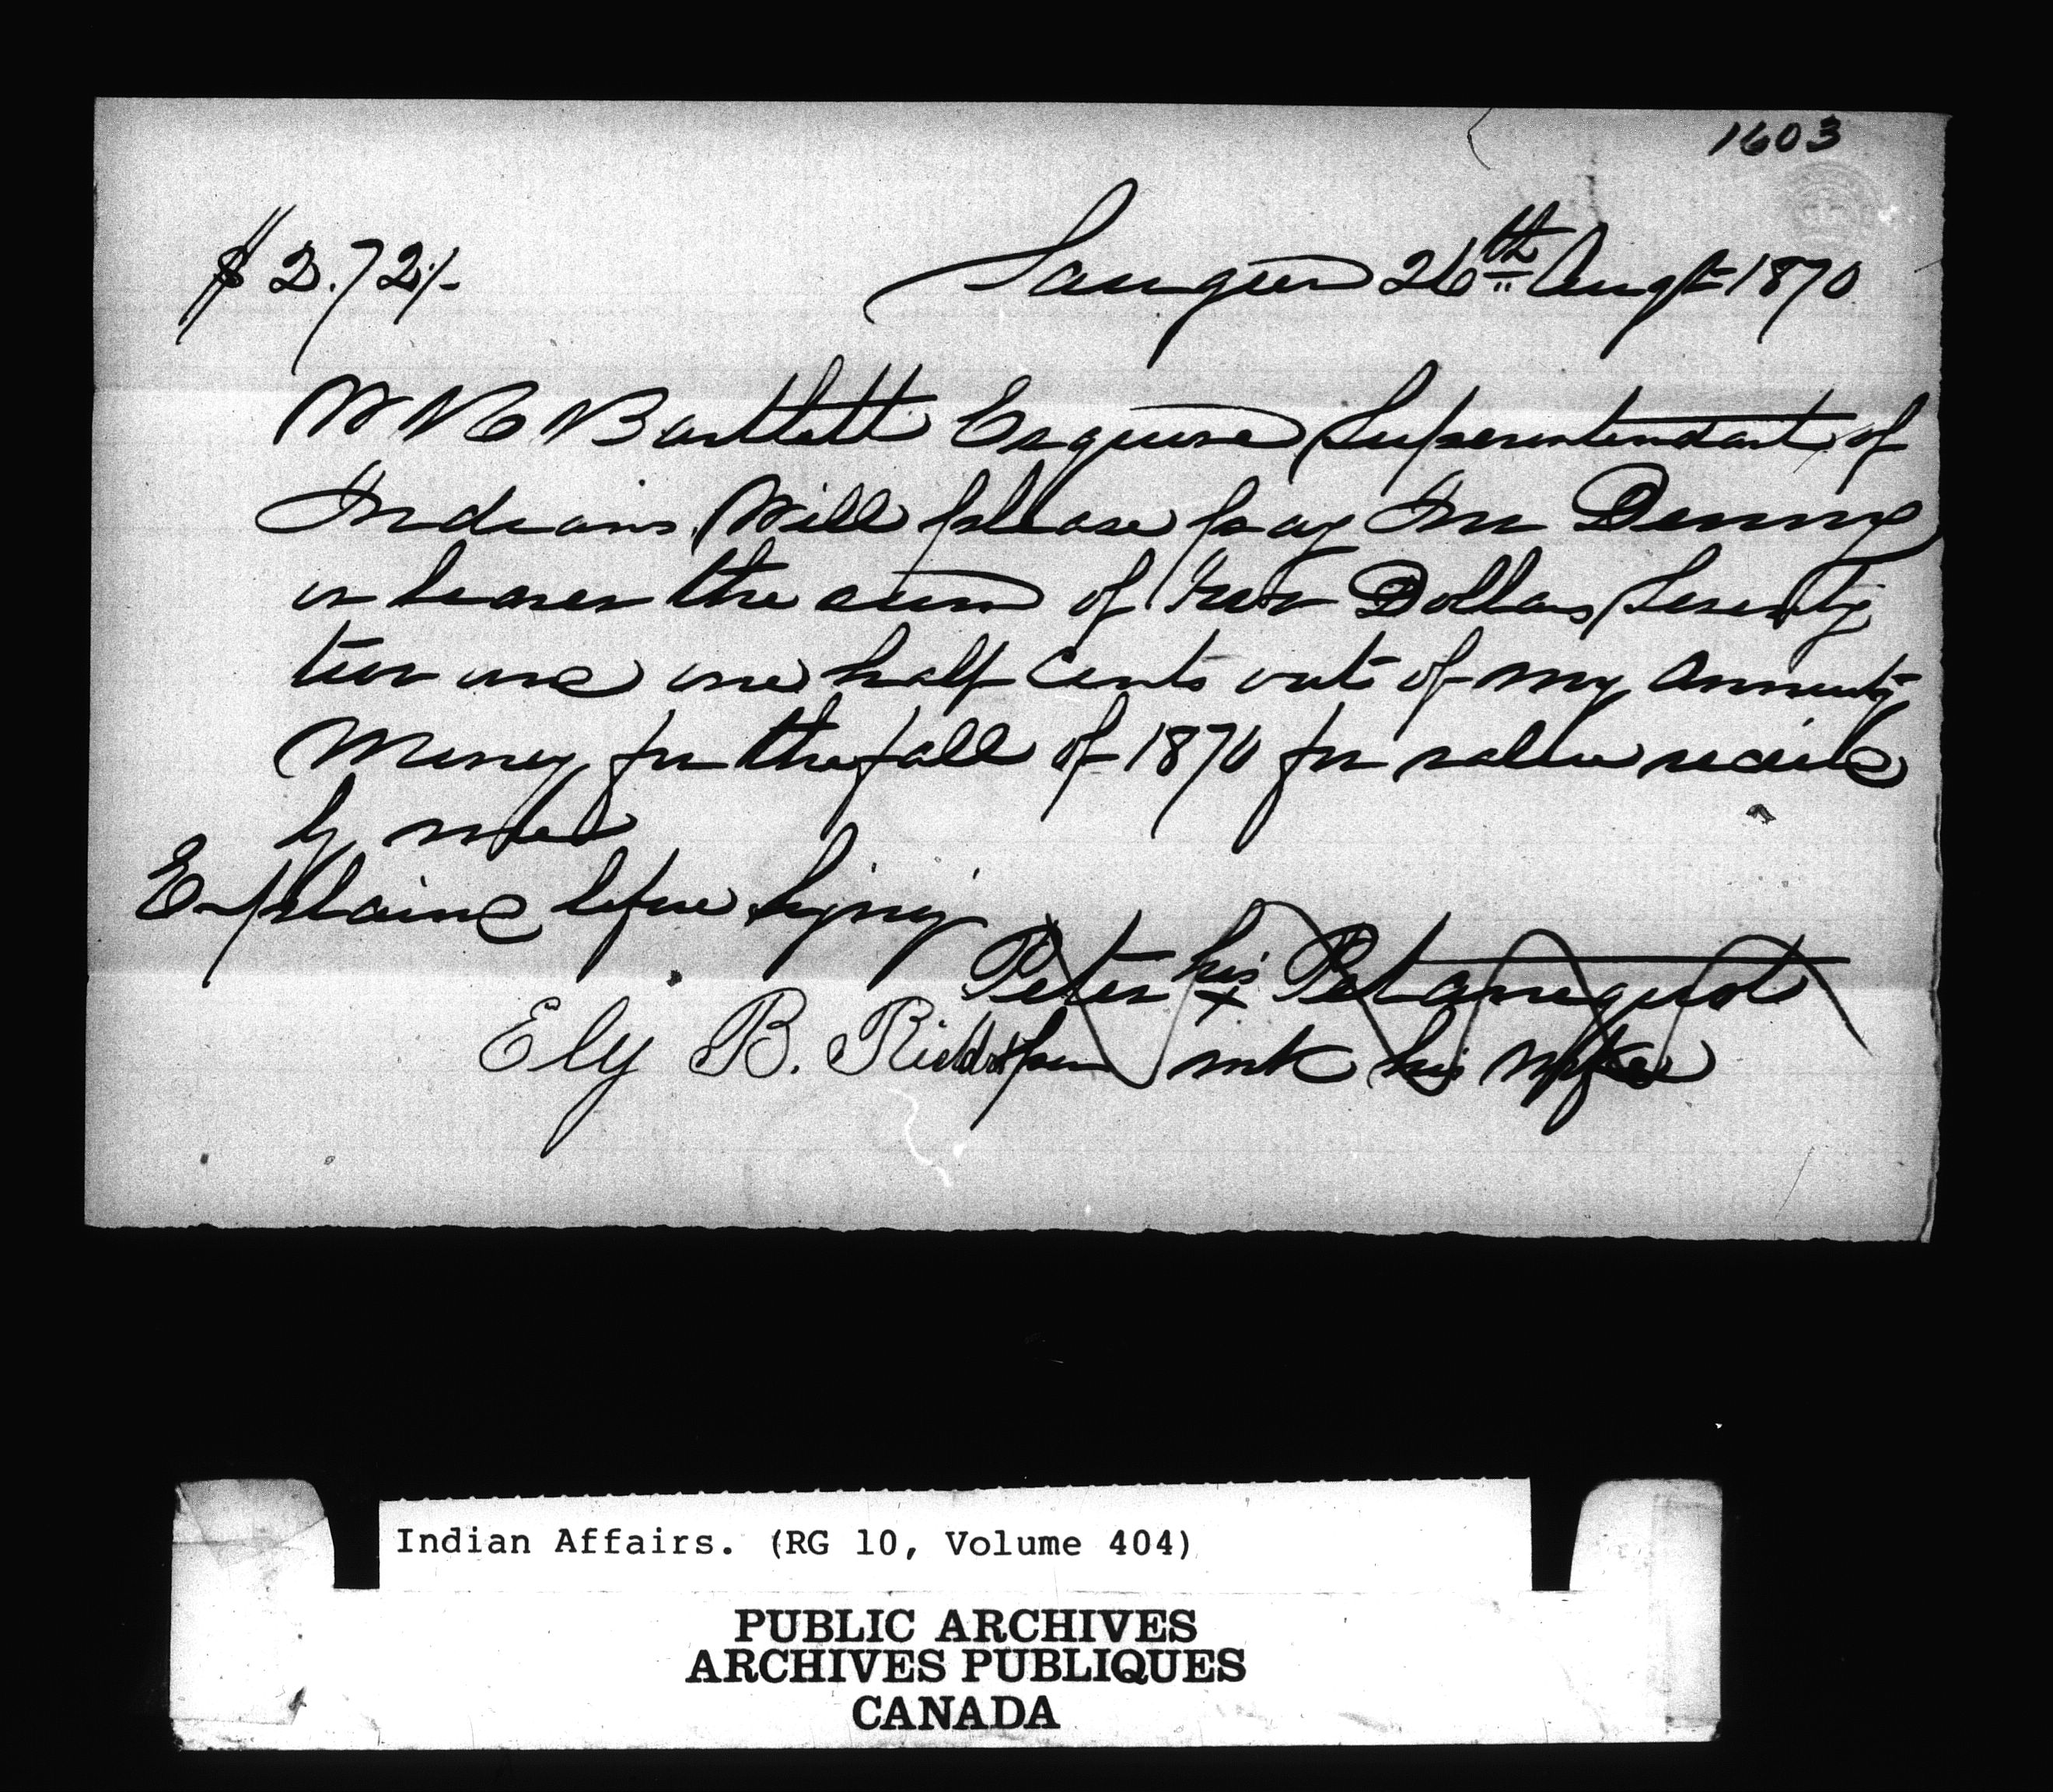 1603
$2.72½ Saugeen 26th Augt 1870
W R Bartlett Esquire Superintendant of
Indians Will please pay Denny
or bearer the sum of two Dollars Seventy
two and one half Cents out of my Annuity
Money for the fall of 1870 for value recived
by me
Explained before signing
Peter his x Petanequot
Ely B. mk his
Indian Affairs. (RG 10, Volume 404)
PUBLIC ARCHIVES
ARCHIVES PUBLIQUES
CANADA